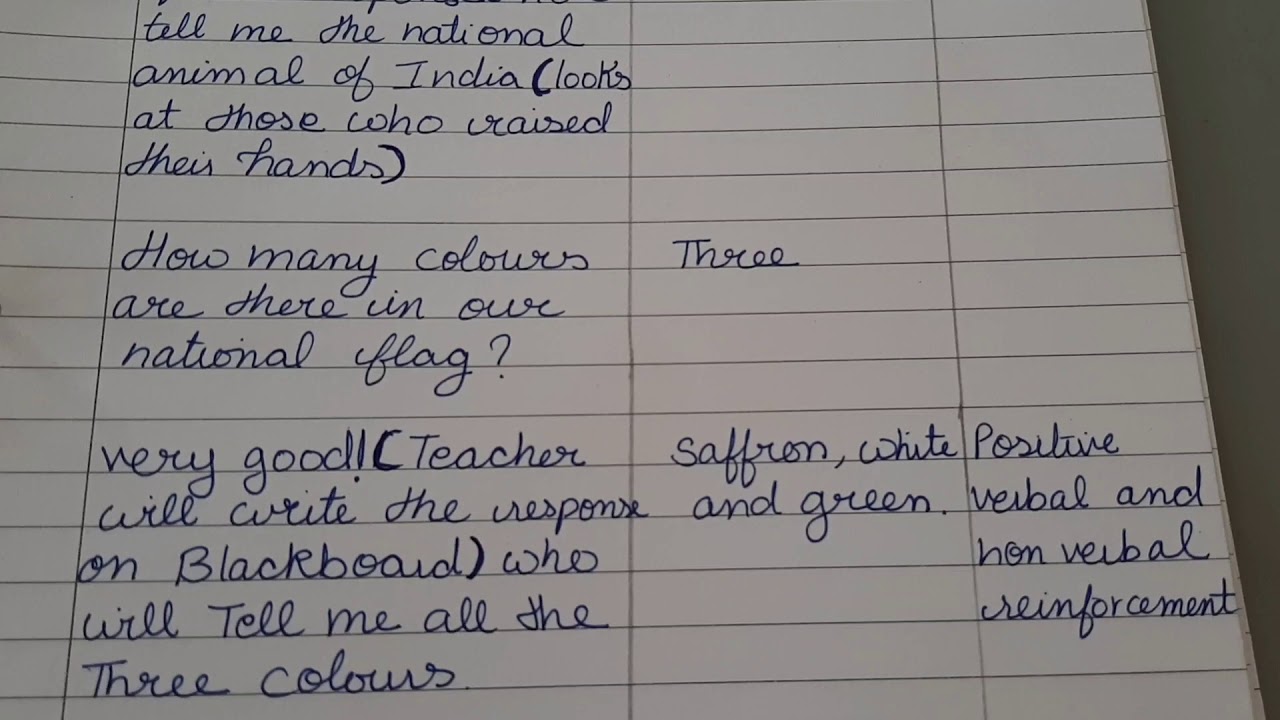 tell me the national
animal of India (looks
at those who raised
their hands)
How many colours
are there in our
national flag?
Three
very good! (Teacher
will write the response
on Blackboard) who
will Tell me all the
Three colours.
Saffron, white
and green.
Positive
verbal and
non verbal
reinforcement